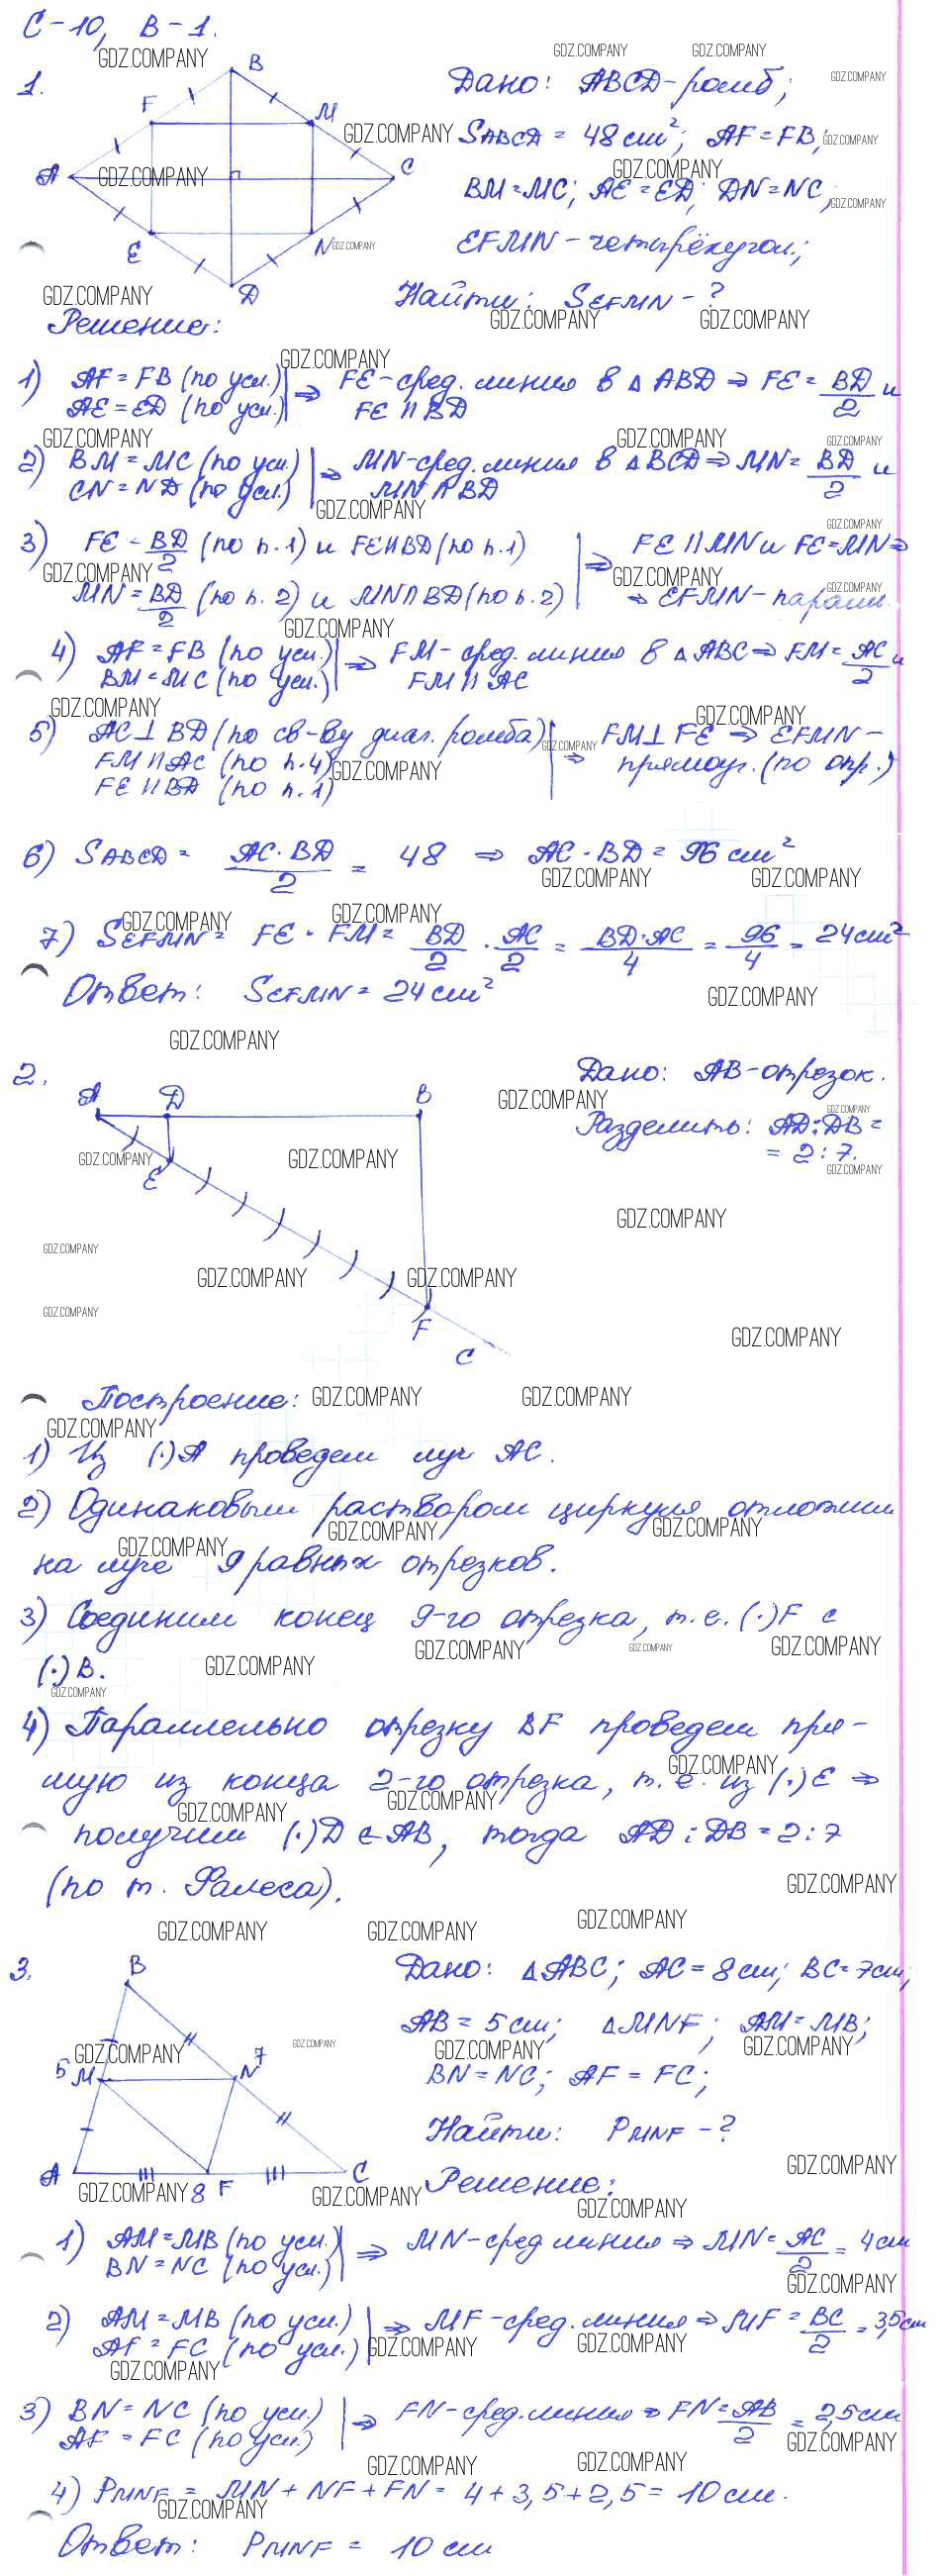 С-10, В-1.
1.
Дано: ABCD-ромб;
S ABCD = 48 см²; AF = FB;
BM = MC; AE = ED; DN = NC;
EFMN - четырёхугол.;
Найти: S EFMN - ?
B
F
M
A
C
E
N
D
Решение:
1) AF = FB (по усл.) | ⇒ FE - сред. линия в △ABD ⇒ FE = BD/2 и
AE = ED (по усл.) | FE || BD
2) BM = MC (по усл.) | ⇒ MN - сред. линия в △BCD ⇒ MN = BD/2 и
CN = ND (по усл.) | MN ∩ BD
3) FE - BD/2 (по п. 1) и FE || BD (по п. 1) | ⇒ FE || MN и FE = MN ⇒
MN = BD/2 (по п. 2) и MN ∩ BD (по п. 2) | ⇒ EFMN - паралл.
4) AF = FB (по усл.) | ⇒ FM - сред. линия в △ABC ⇒ FM = AC/2 и
BM = MC (по усл.) | FM || AC
5) AC ⊥ BD (по св-ву диаг. ромба) | ⇒ FM ⊥ FE ⇒ EFMN -
FM || AC (по п. 4) | прямоуг. (по опр.)
FE || BD (по п. 1)
6) S ABCD = AC · BD/2 = 48 ⇒ AC · BD = 96 см²
7) S EFMN = FE · FM = BD/2 · AC/2 = BD·AC/4 = 96/4 = 24 см²
Ответ: S EFMN = 24 см²
2.
Дано: AB - отрезок.
Разделить: AD : DB =
= 2 : 7.
A D B
E
F
C
Построение:
1) Из (·)A проведем луч AC.
2) Одинаковым раствором циркуля отложим
на луче 9 равных отрезков.
3) Соединим конец 9-го отрезка, т.е. (·)F с
(·)B.
4) Параллельно отрезку BF проведем пря-
мую из конца 2-го отрезка, т.е. из (·)E ⇒
получим (·)D ∈ AB, тогда AD : DB = 2 : 7
(по т. Фалеса).
3.
Дано: △ABC; AC = 8 см; BC = 7 см;
AB = 5 см; △MNF; AM = MB;
BN = NC; AF = FC;
Найти: P MNF - ?
B
5 M N 7
A 8 F C
Решение:
1) AM = MB (по усл.) | ⇒ MN - сред. линия ⇒ MN = AC/2 = 4 см
BN = NC (по усл.) |
2) AM = MB (по усл.) | ⇒ MF - сред. линия ⇒ MF = BC/2 = 3,5 см
AF = FC (по усл.) |
3) BN = NC (по усл.) | ⇒ FN - сред. линия ⇒ FN = AB/2 = 2,5 см
AF = FC (по усл.) |
4) P MNF = MN + NF + FN = 4 + 3,5 + 2,5 = 10 см.
Ответ: P MNF = 10 см
GDZ.COMPANY